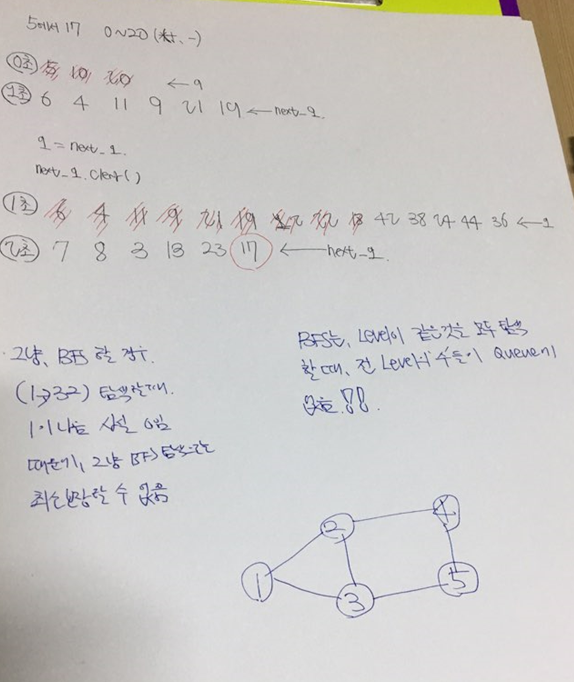 5에서 17 0~20 (*, +, -)
0초 5 10 20 ← q
1초 6 4 11 9 21 19 ← next_q.
q = next_q.
next_q.clear()
1초 6 4 11 9 21 19 12 22 18 42 38 24 44 36 ← q
2초 7 8 3 13 23 17 ← next_q
그냥, BFS 할 경우.
(1→32) 탐색할때.
1이나 사실 0임
때문에, 그냥 BFS 탐색으로는
최소보장할 수 없음
BFS는, Level이 같은것을 모두 탐색
할때, 전 Level의 수들이 Queue에
없음!!.
2 4
1
3 5